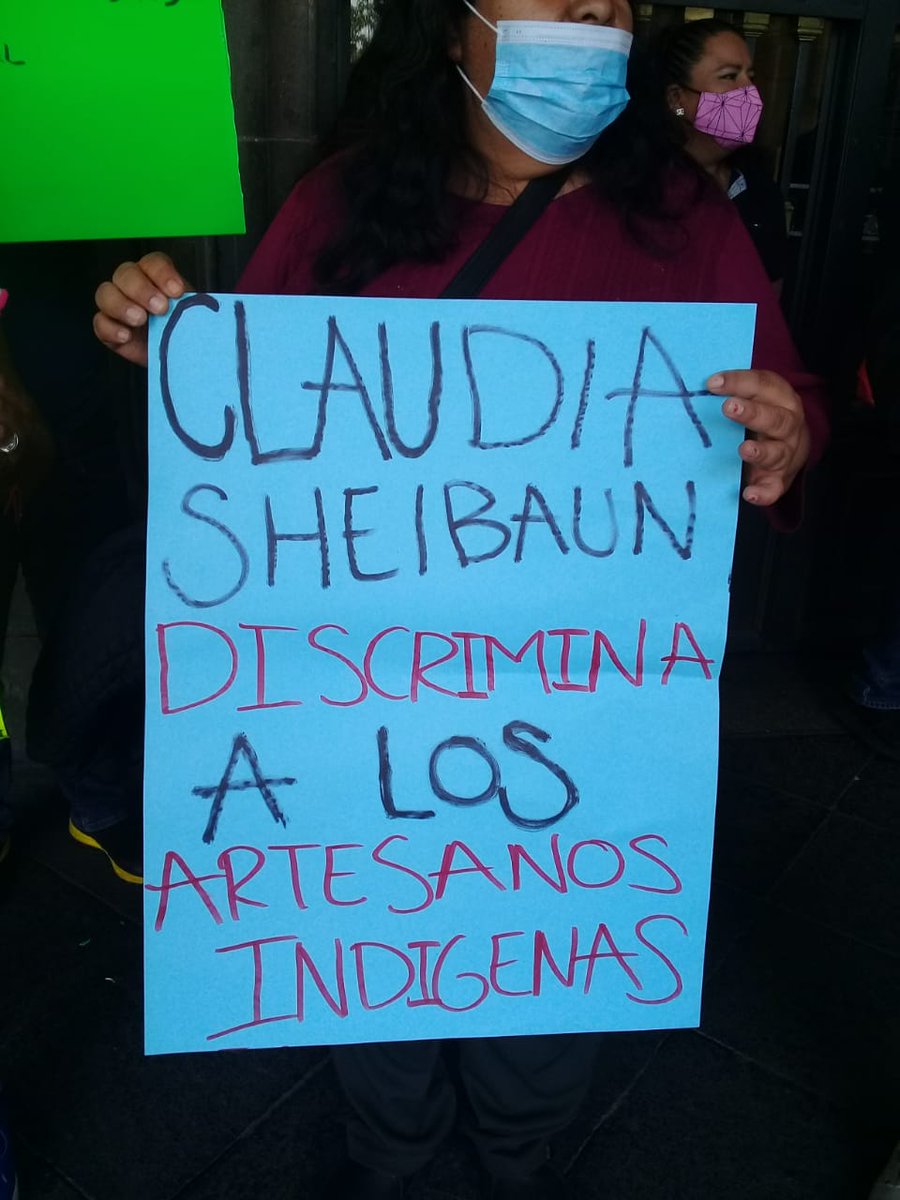 CLAUDIA
SHEIBAUN
DISCRIMINA
A LOS
ARTESANOS
INDIGENAS